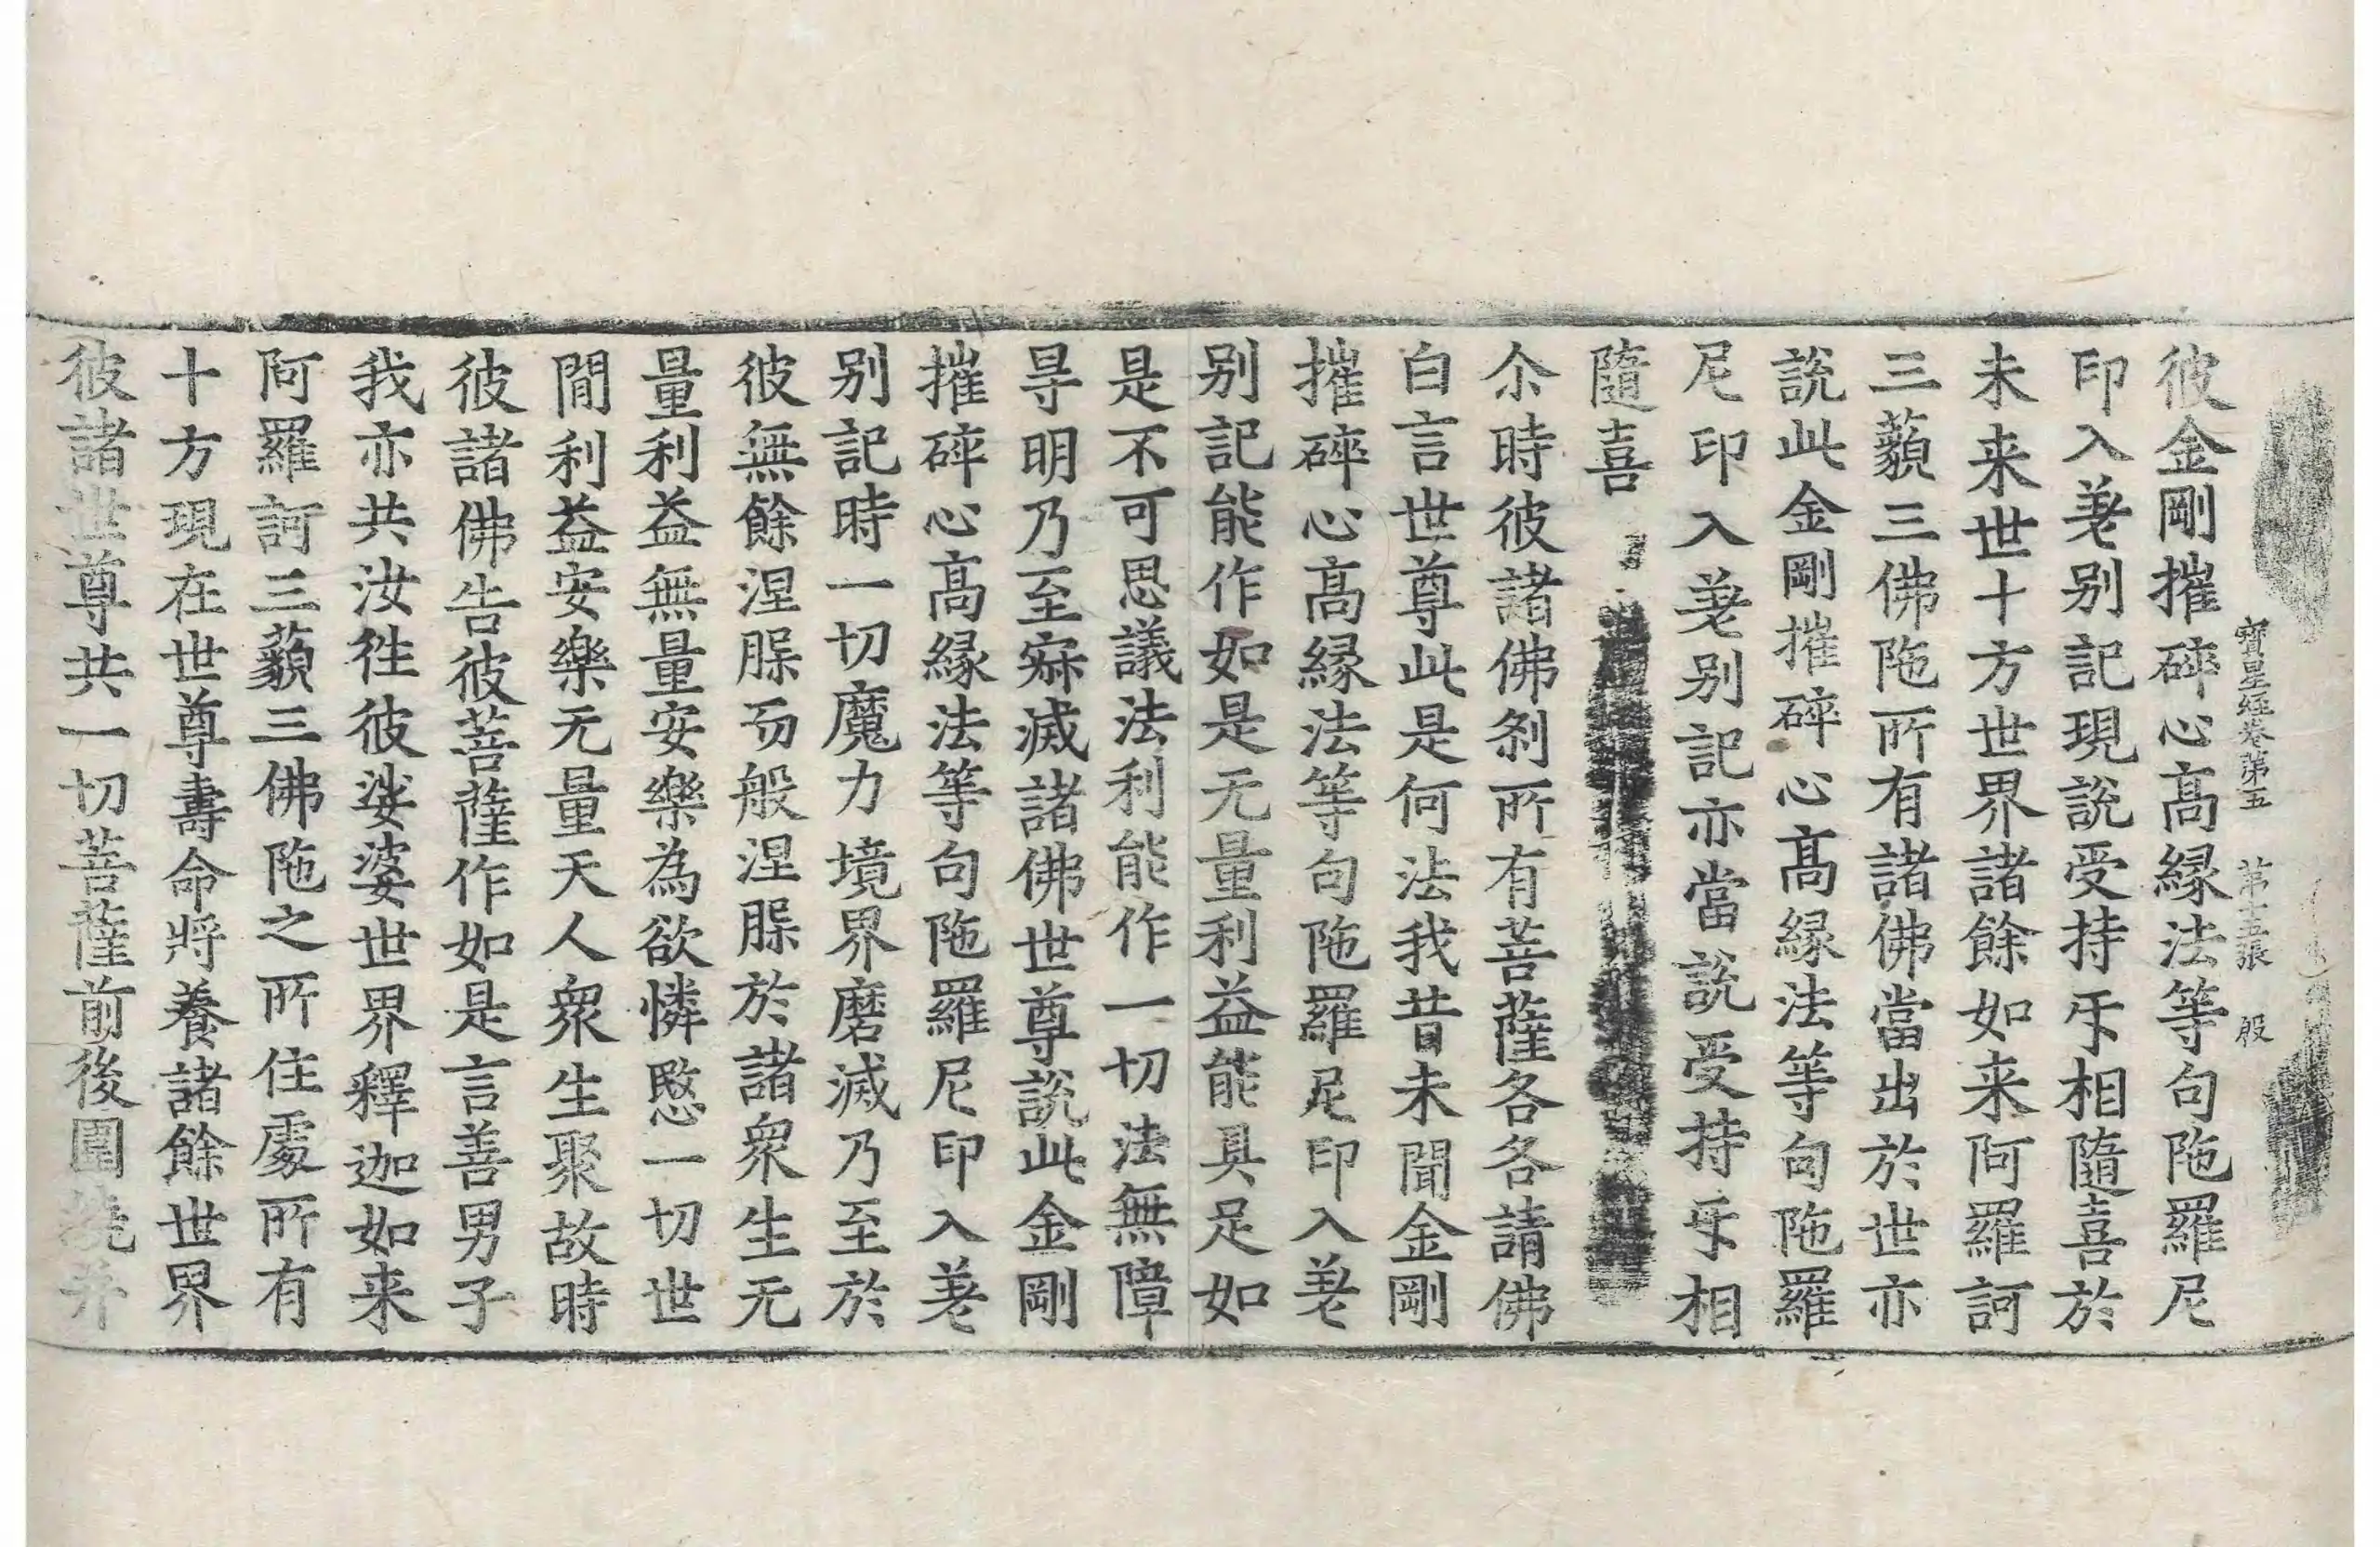 寳星経卷第五　第十五張　殷
彼金剛摧碎心髙縁法等句陁羅尼
印入𦍒别記現說受持𭻾相隨喜於
未来世十方世界諸餘如来阿羅訶
三藐三佛陁所有諸佛當出於世亦
說此金剛摧碎心髙縁法等句陁羅
尼印入𦍒别記亦當說受持𭻾相
隨喜
尒時彼諸佛刹所有菩薩各各請佛
白言世尊此是何法我昔未聞金剛
摧碎心髙縁法等句陁羅尼印入𦍒
别記能作如是无量利益能具足如
是不可思議法利能作一切法無障
㝵明乃至𡧯滅諸佛世尊說此金剛
摧碎心髙縁法等句陁羅尼印入𦍒
别記時一切魔力境界磨滅乃至於
彼無餘涅槃而般涅槃於諸衆生无
量利益無量安樂為欲憐愍一切世
間利益安樂无量天人衆生聚故時
彼諸佛告彼菩薩作如是言善男子
我亦共汝徃彼娑婆世界釋迦如来
阿羅訶三藐三佛陁之所住處所有
十方現在世尊壽命將養諸餘世界
彼諸世尊共一切菩薩前後圍繞并